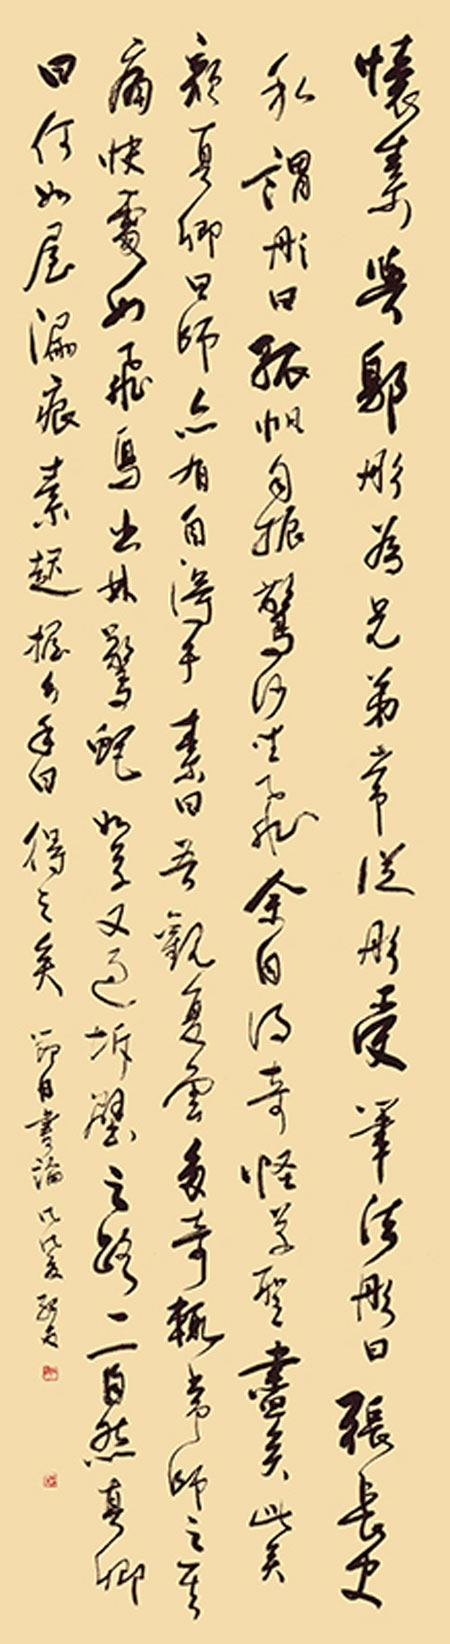 懷素與鄔彤為兄弟常從彤受筆法彤曰張長史
私謂彤曰孤帆自振驚沙坐飛余自得奇怪草聖盡於此矣
顏真卿曰師亦有自得乎素曰吾觀夏雲多奇輒常師之其
痛快處如飛鳥出林驚蛇如草又遇坼壁之路一一自然真卿
曰何如屋漏痕素起握公手曰得之矣 節自書論